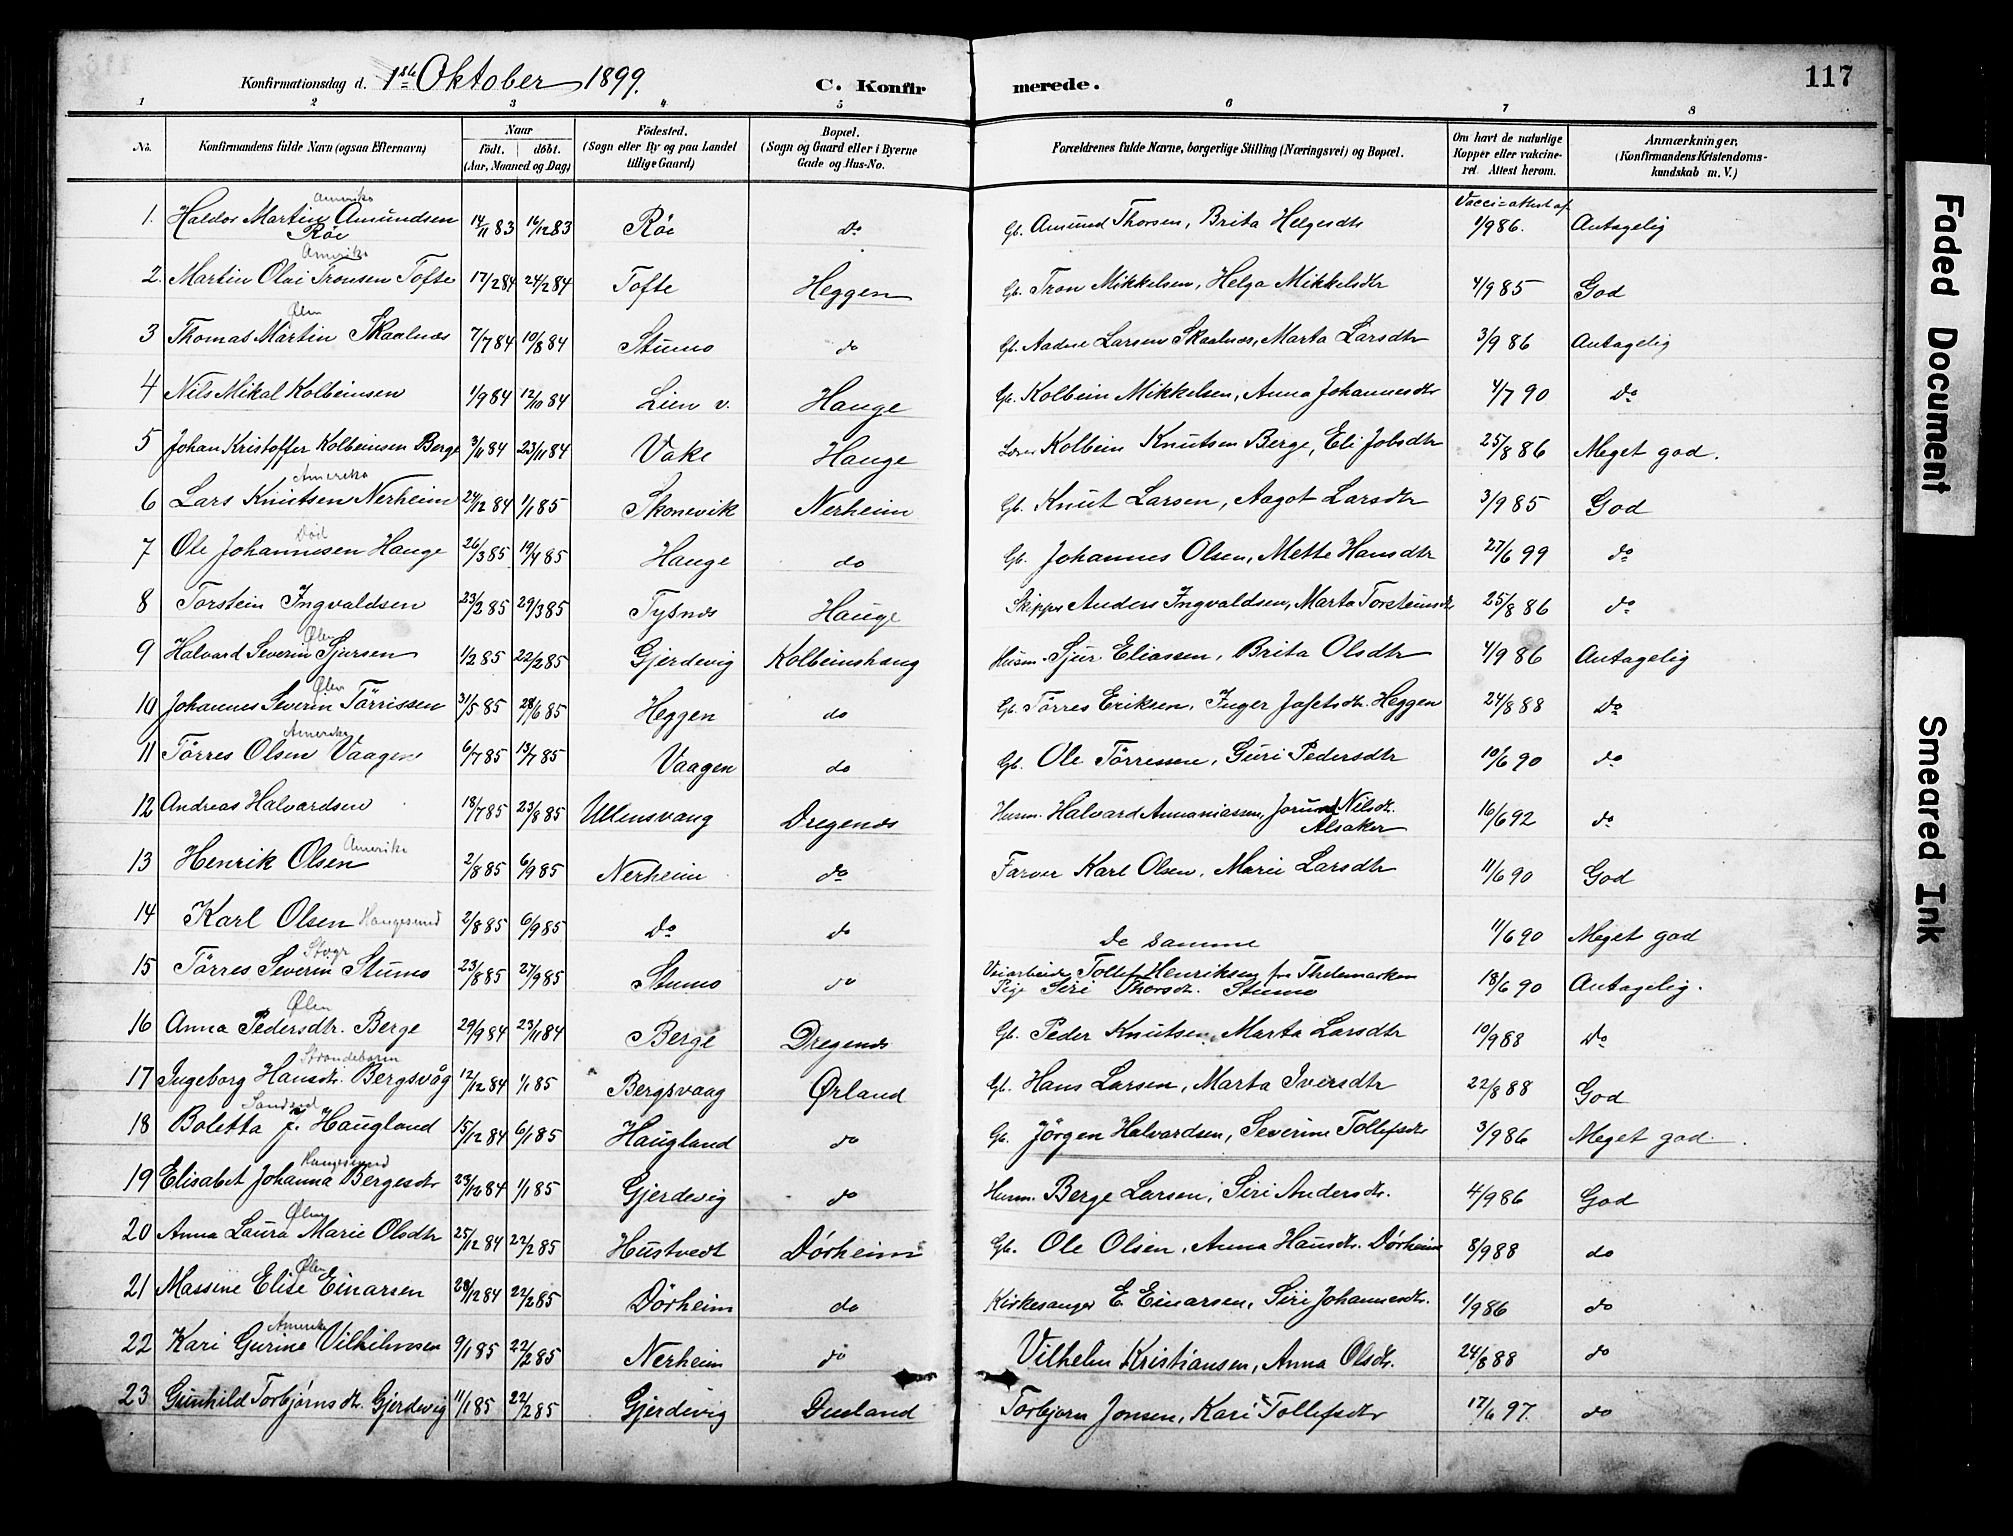 117
Konfirmationsdag d. 1ste Oktober 1899. C. Konfirmerede.
1 2 3 4 5 6 7 8
No. Konfirmandens fulde Navn (ogsaa Efternavn) Naar født. døbt. (Aar, Maaned og Dag) Födested. (Sogn eller By og paa Landet tillige Gaard) Bopæl. (Sogn og Gaard eller i Byerne Gade og Hus-No. Forældrenes fulde Navne, borgerlige Stilling (Næringsvei) og Bopæl. Om havt de naturlige Kopper eller vakcineret Attest herom. Anmærkninger. (Konfirmandens Kristendomskundskab m. V.)
Amerika
1. Haldor Martin Amundsen Röe 14/11 83 16/12 83 Röe do Gb. Amund Thorsen, Brita Helgesdtr Vacci=attest af 1/9 86. Antagelig
Amerika
2. Martin Olai Tronsen Tofte 17/2 84 24/2 84 Tofte Heggen Gb. Tron Mikkelsen, Helga Mikkelsdtr 4/9 85 God
Ølen
3 Thomas Martin Skaalnes 7/7 84 10/8 84 Stumo do Gb. Aadne Larsen Skaalnes, Marta Larsdtr 3/9 86 Antagelig
4 Nils Mikal Kolbeinsen 1/9 84 12/10 84 Lien v. Hauge Gb. Kolbein Mikkelsen, Anna Johannesdtr 4/7 90 do
5 Johan Kristoffer Kolbeinsen Berge 3/11 84 23/11 84 Vake Hauge Kolbein Knutsen Berge, Eli Jobsdtr 25/8 86 Meget god.
Amerika
6 Lars Knutsen Nerheim 24/12 84 1/1 85 Skonevik Nerheim Gb. Knut Larsen, Aagot Larsdtr 3/9 85 God
Död
7 Ole Johannesen Hauge 26/3 85 19/4 85 Hauge do Gb. Johannes Olsen, Mette Hansdtr 27/6 99 do
8 Torstein Ingvaldsen 23/2 85 29/3 85 Tysnes Hauge Skipper Anders Ingvaldsen, Marta Torsteinsdtr 25/8 86 do
Ølen
9 Halvard Severin Sjursen 1/2 85 22/2 85 Gjerdevig Kolbeinshaug Husm. Sjur Eliassen, Brita Olsdtr 4/9 86 Antagelig
Ølen
10 Johannes Severin Törrissen 31/5 85 28/6 85 Heggen do Gb. Törres Eriksen, Inger Josefsdtr. Heggen 24/8 88 do
Amerika
11 Törres Olsen Vaagen 6/7 85 13/7 85 Vaagen do Gb. Ole Törressen, Guri Pedersdtr 10/6 90 do
12 Andreas Halvardsen 18/7 85 23/8 85 Ullensvang Dregenes Husm. Halvard Annaniassen, Jorund Nilsdt. Alsaker 16/6 92 do
13 Henrik Olsen Amerika 2/8 85 6/9 85 Nerheim do Farver Karl Olsen, Marie Larsdtr 11/6 90 God
14 Karl Olsen Haugesund 2/8 85 6/9 85 do do De samme 11/6 90 Meget god
15 Törres Severin Stumo 23/8 85 27/9 85 Stumo do Veiarbeider Tollef Henriksen fra Thelemarken
Pige Siri Thorsdt. Stumo 18/6 90 Antagelig.
Ølen
16 Anna Pedersdtr. Berge 29/9 84 23/11 84 Berge Dregenes Gb. Peder Knutsen, Marta Larsdtr 10/9 88 do
Strandebarm
17 Ingeborg Hansdtr. Bergsvåg 12/12 84 1/1 85 Bergsvaag Ørland Gb. Hans Larsen, Marta Iversdtr 22/8 88 God
Sandeid
18 Boletta J. Haugland 15/12 84 6/1 85 Haugland do Gb. Jörgen Halvardsen, Severine Tollefsdtr 3/9 86 Meget god.
Haugesund
19 Elisabet Johanna Bergesdtr 23/10 84 1/1 85 Gjerdevig do Husm. Berge Larsen, Siri Andersdtr. 4/9 86 God
Ølen
20 Anna Laura Marie Olsdtr 25/12 84 22/2 85 Hustvedt Dörheim Gb. Ole Olsen, Anna Hansdtr. Dörheim 8/9 88 do
Ølen
21 Massine Elise Einarsen 28/12 84 22/2 85 Dörheim do Kirkesanger E. Einarsen, Siri Johannesdtr. 1/9 86 do
Amerika
22 Kari Gurine Vilhelmsen 9/1 85 22/2 85 Nerheim do Vilhelm Kristiansen, Anna Olsdtr. 24/8 88 do
23 Gunhild Torbjørnsdt. Gjerdevig 11/1 85 22/2 85 Gjerdevig Dueland Torbjørn Jonsen, Kari Tollefsdtr 17/6 97. do
Faded Document
Smeared Ink